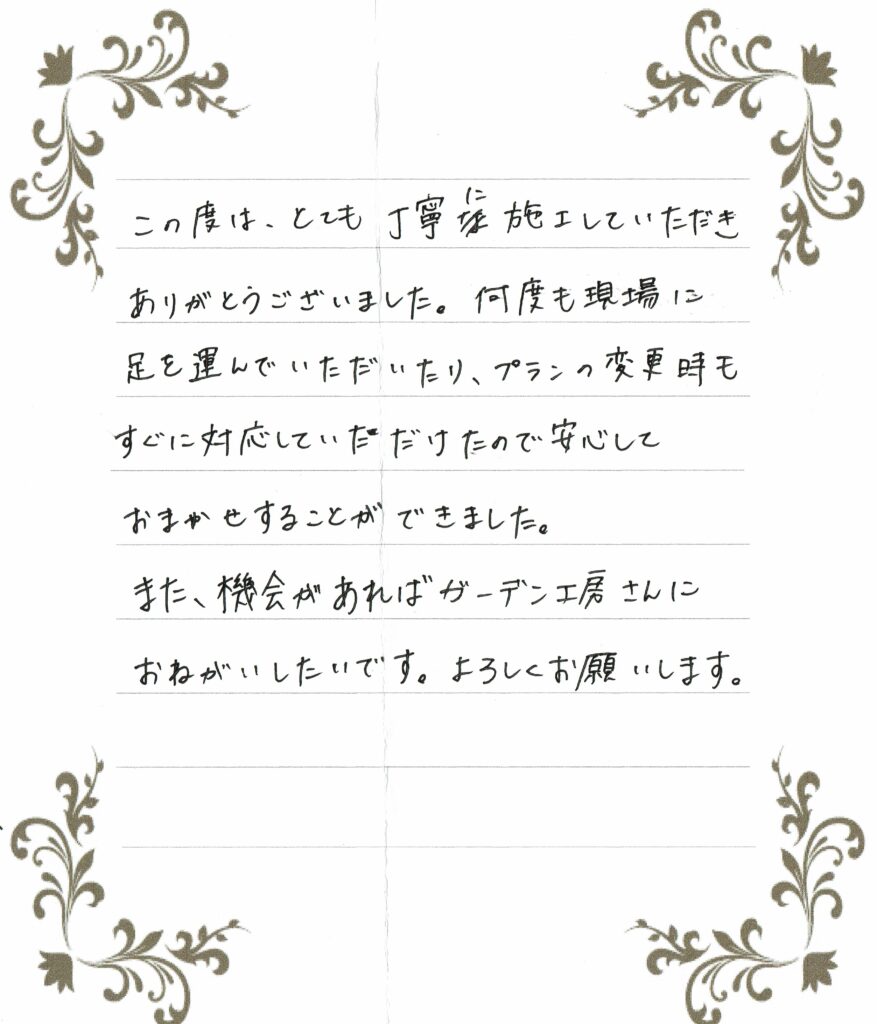 この度は、とても丁寧に施工していただき
ありがとうございました。何度も現場に
足を運んでいただいたり、プランの変更時も
すぐに対応していただけたので安心して
おまかせすることができました。
また、機会があればガーデン工房さんに
おねがいしたいです。よろしくお願いします。